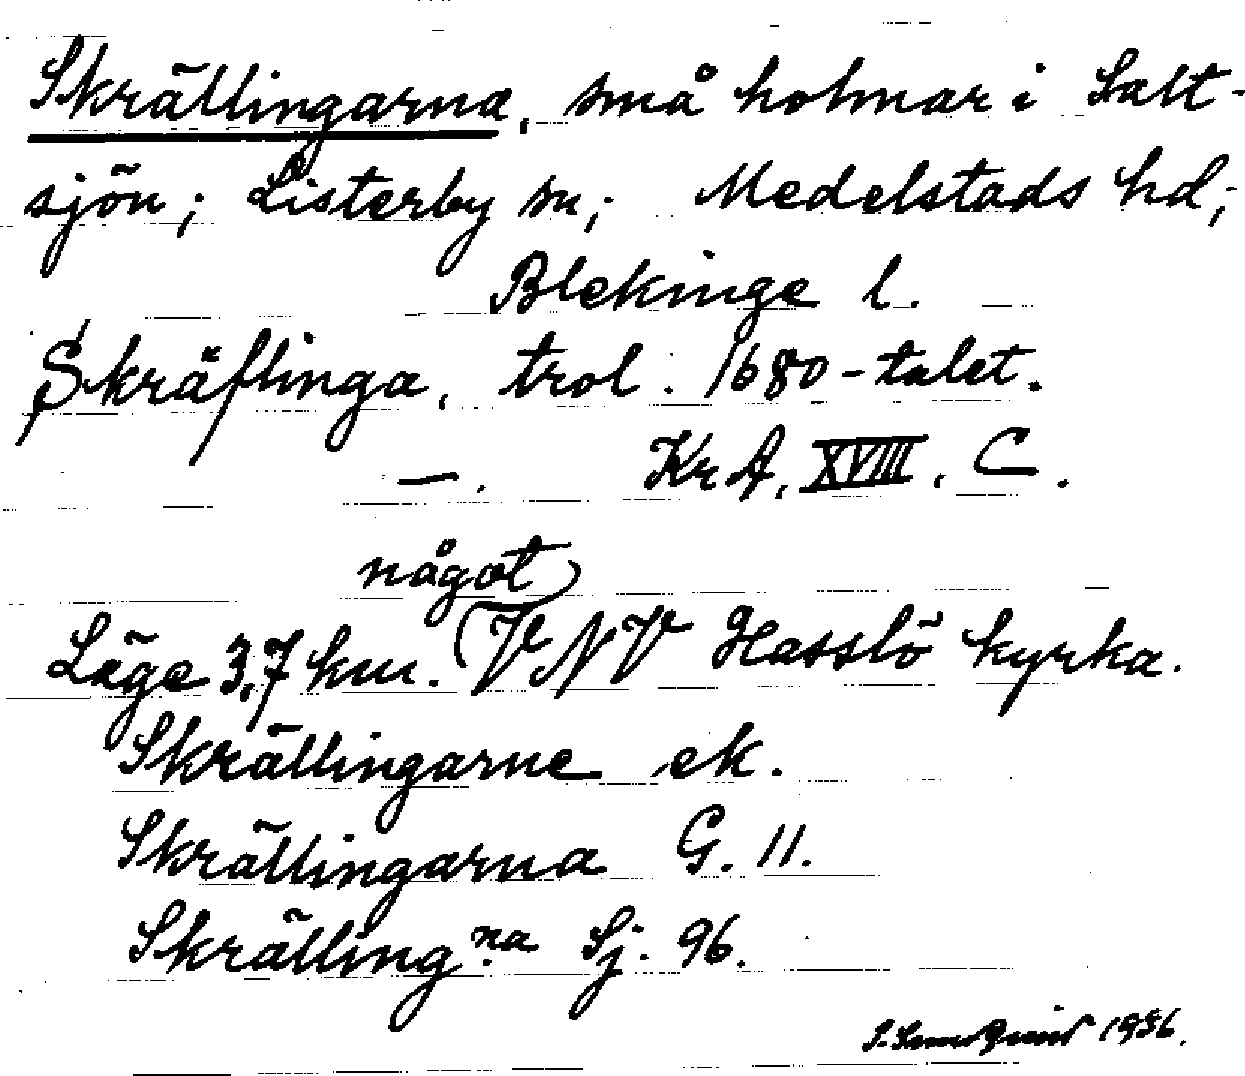 Skrällingarna, små holmar i Salt-
sjön; Listerby sn; Medelstads hd;
Blekinge l.
Skräflinga, trol. 1680-talet.
—. KrA, XVIII. C.
något
Läge 3,7 km. VNV Hasslö kyrka.
Skrällingarne ek.
Skrällingarna G. 11.
Skrälling.na Sj. 96.
1936.